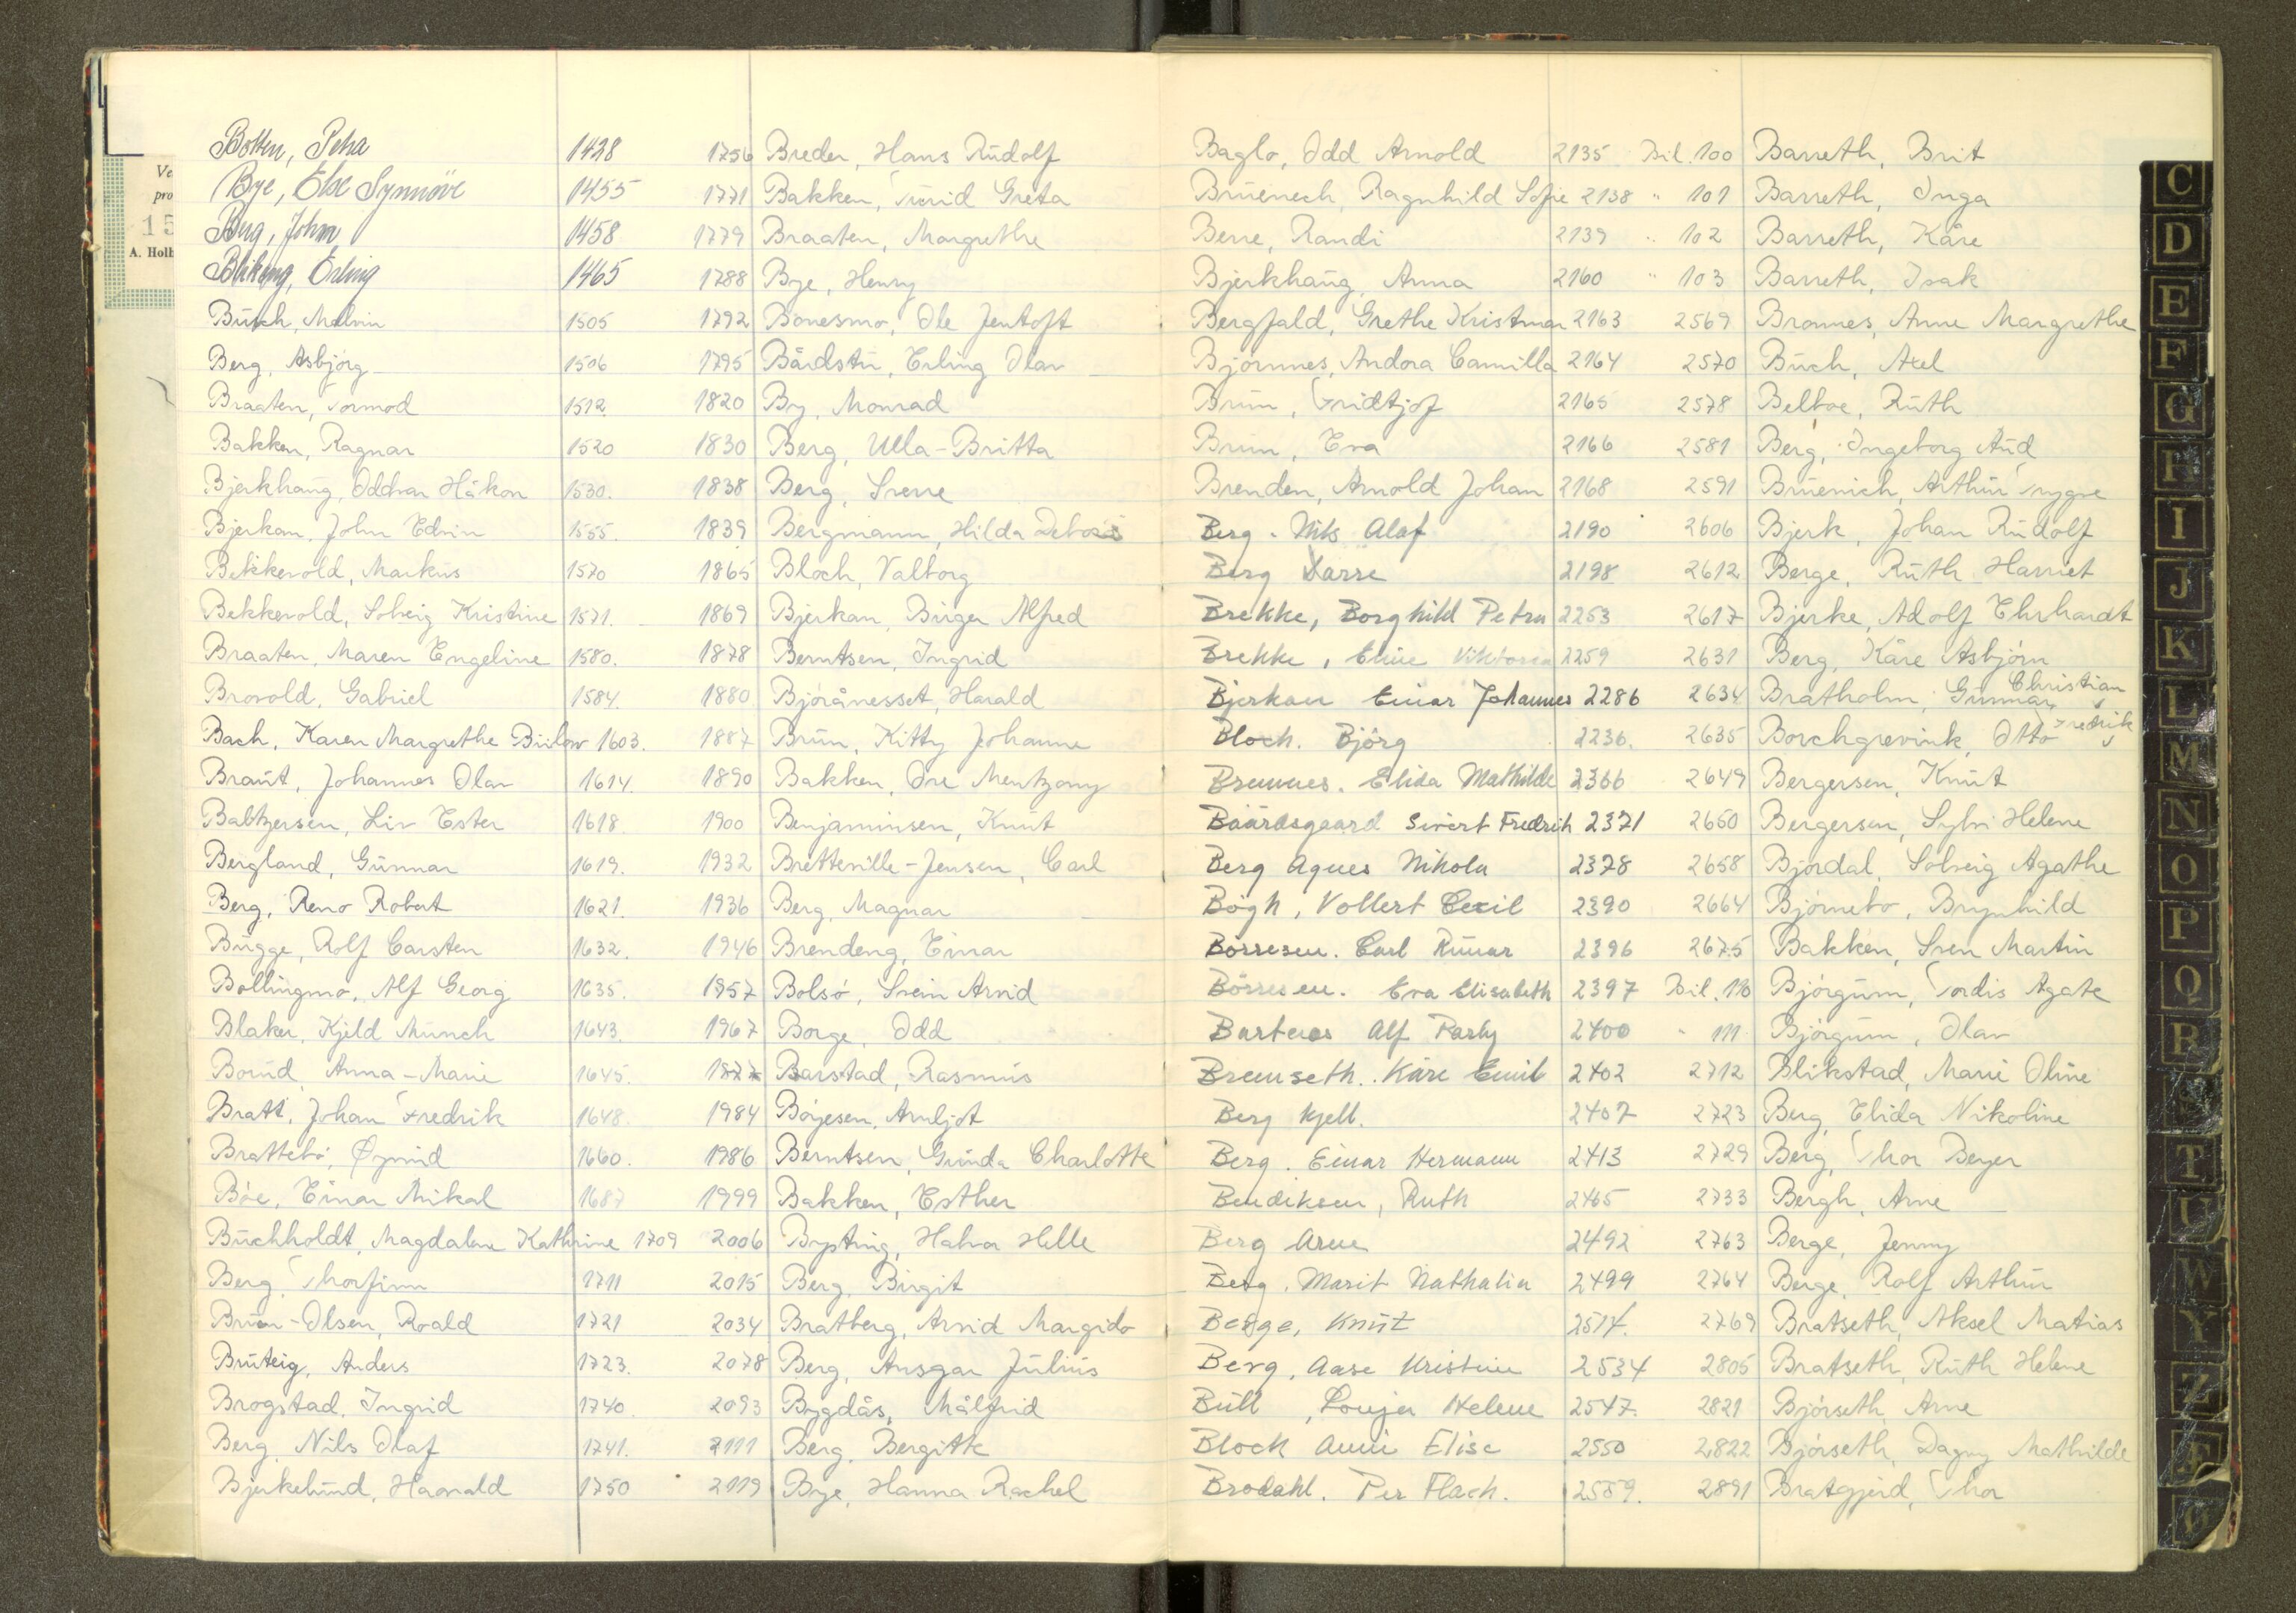 Botten, Petra 1428
Bye, Else Synnöve 1455
Berg, John 1458
Blikeng, Erling 1465
Busch, Malvin 1505
Berg, Asbjørg 1506
Braaten, Tormod 1512.
Bakken, Ragnar 1520
Bjerkhaug, Oddvar Håkon 1530.
Bjerkan, John Edvin 1555.
Bekkevold, Markus 1570
Bekkevold, Solveig Kristine 1571.
Braaten, Maren Engeline 1580.
Brovold, Gabriel 1584.
Bach, Karen Margrethe Bülow 1603.
Braut, Johannes Olav 1614.
Baltzersen, Liv Ester 1618
Bergland, Gunnar 1619.
Berg, Reno Robert 1621.
Bugge, Rolf Carsten 1632.
Bollingmo, Alf Georg 1635.
Blaker, Kjeld Munch 1643.
Borud, Anna-Marie 1645.
Bratt, Johan Fredrik 1648.
Brattebø, Øyvind 1660.
Bøe, Einar Mikal 1687
Buchholdt, Magdalene Kathrine 1709
Berg, Thorfinn 1711
Bruun-Olsen, Roald 1721
Bruteig, Anders 1723.
Brogstad, Ingrid 1740.
Berg, Nils Olaf 1741.
Bjerkelund, Haavald 1750
1756 Breder, Hans Rudolf
1771 Bakken, Turid Greta
1779 Braaten, Margrethe
1788 Bye, Henry
1792 Bonesmo, Ole Jentoft
1795 Bårdstu, Erling Olav
1820 By, Monrad
1830 Berg, Ulla-Britta
1838 Berg, Sverre
1839 Bergmann, Hilda
1865 Bloch, Valborg
1869 Bjerkan, Birger Alfred
1878 Berntsen, Ingrid
1880 Bjørånesset, Harald
1887 Brun, Kitty Johanne
1890 Bakken, Ove Mentzony
1900 Benjaminsen, Knut
1932 Bretteville-Jensen, Carl
1936 Berg, Magnar
1946 Brendeng, Einar
1957 Bolsø, Svein Arvid
1967 Borge, Odd
Barstad, Rasmus
1984 Børjesen, Arnljot
1986 Berntsen, Gunda Charlotte
1999 Bakken, Esther
2006 Bysting, Halvor Helle
2015 Berg, Birgit
2034 Bratberg, Arvid Margido
2078 Berg, Ansgar Julius
2093 Bygdås, Målfrid
2111 Berg, Bergitte
2119 Bye, Hanna Rachel
Baglo, Odd Arnold 2135
Bruenech, Ragnhild Sofie 2138
Berre, Randi 2139
Bjerkhaug, Anna 2160
Bergfald, Grethe Kristmar 2163
Bjørnnes, Andora Camilla 2164
Brun, Fridtjof 2165
Brun, Eva 2166
Brenden, Arnold Johan 2168
Berg. Nils Olaf 2190
Berg Lasse 2198
Brekke, Borghild Petra 2253
Brekke, Eline Viktoria 2259
Bjerkan Einar Johannes 2286
Bloch. Björg 2236.
Bremnes. Elida Mathilde 2366
Baardsgaard Sivert Fredrik 2371
Berg Agnes Nikola 2378
Bögh, Vollert Cecil 2390
Börresen. Carl Runar 2396
Börresen. Eva Elisabeth 2397
Barteros Alf Parly 2400
Bremseth. Kåre Emil 2402
Berg Kjell. 2407
Berg. Einar Hermann 2413
Bendiksen, Ruth 2465
Berg Arne 2492
Berg. Marit Nathalia 2499
Berge, Knut 2514.
Berg, Aase Kristine 2534
Bull, Louise Helene 2547.
Block Anni Elise 2550
Brodahl. Per Flach. 2589.
Bil. 100 Barreth, Brit
" 101 Barreth, Inga
" 102 Barreth, Kåre
" 103 Barreth, Isak
2569 Bronnes, Anne Margrethe
2570 Buch, Axel
2578 Belboe, Ruth
2581 Berg, Ingeborg Aud
2591 Bruenich, Arthur Trygve
2606 Bjerk, Johan Rudolf
2612 Berge, Ruth Harriet
2617 Bjerke, Adolf Ehrhardt
2631 Berg, Kåre Asbjørn
2634 Bratholm, Gunnar Christian
2635 Borchgrevink, Otto Fredrik
2649 Bergersen, Knut
2650 Bergersen, Sylvi Helene
2658 Bjørdal, Solveig Agathe
2664 Bjørnebo, Brynhild
2675 Bakken, Sven Martin
Bil. 110 Bjørgum, Tordis Agate
" 111 Bjørgum, Olav
2712 Blikstad, Marie Oline
2723 Berg, Elida Nikoline
2729 Berg, Thor Beyer
2733 Bergh, Arne
2763 Berge, Jenny
2764 Berge, Rolf Arthur
2769 Bratseth, Aksel Matias
2805 Bratseth, Ruth Helene
2821 Bjørseth, Arne
2822 Bjørseth, Dagny Mathilde
2891 Bratgjerd, Thor
Ve
pro
15
A. Holb
C
D
E
F
G
H
I
J
K
L
M
N
O
P
Q
R
S
T
U
W
Y
Z
Æ
Ø